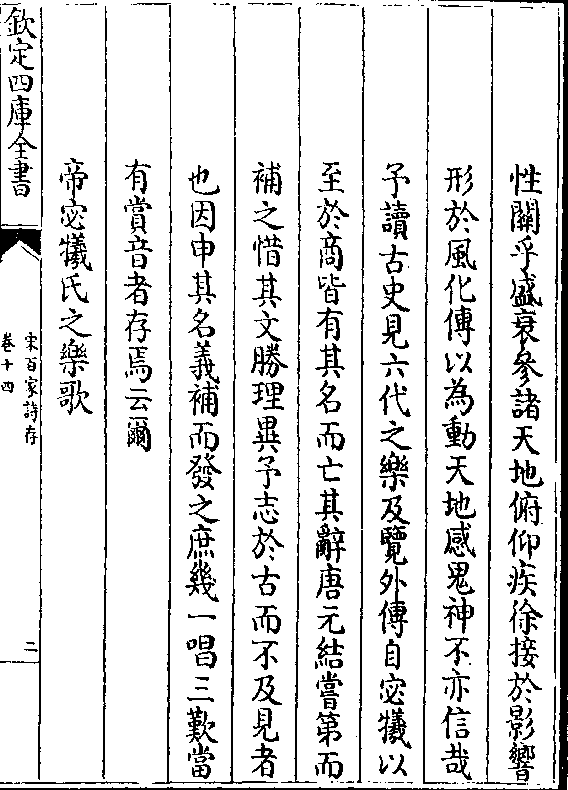 性關乎盛衰參諸天地俯仰疾徐接於影響
形於風化傳以為動天地感鬼神不亦信哉
予讀古史見六代之樂及覽外傳自宓犧以
至於商皆有其名而亡其辭唐元結嘗第而
補之惜其文勝理異予志於古而不及見者
也因申其名義補而發之庶幾一唱三歎當
有賞音者存焉云爾
帝宓犧氏之樂歌
欽定四庫全書
宋百家詩存
卷十四
二